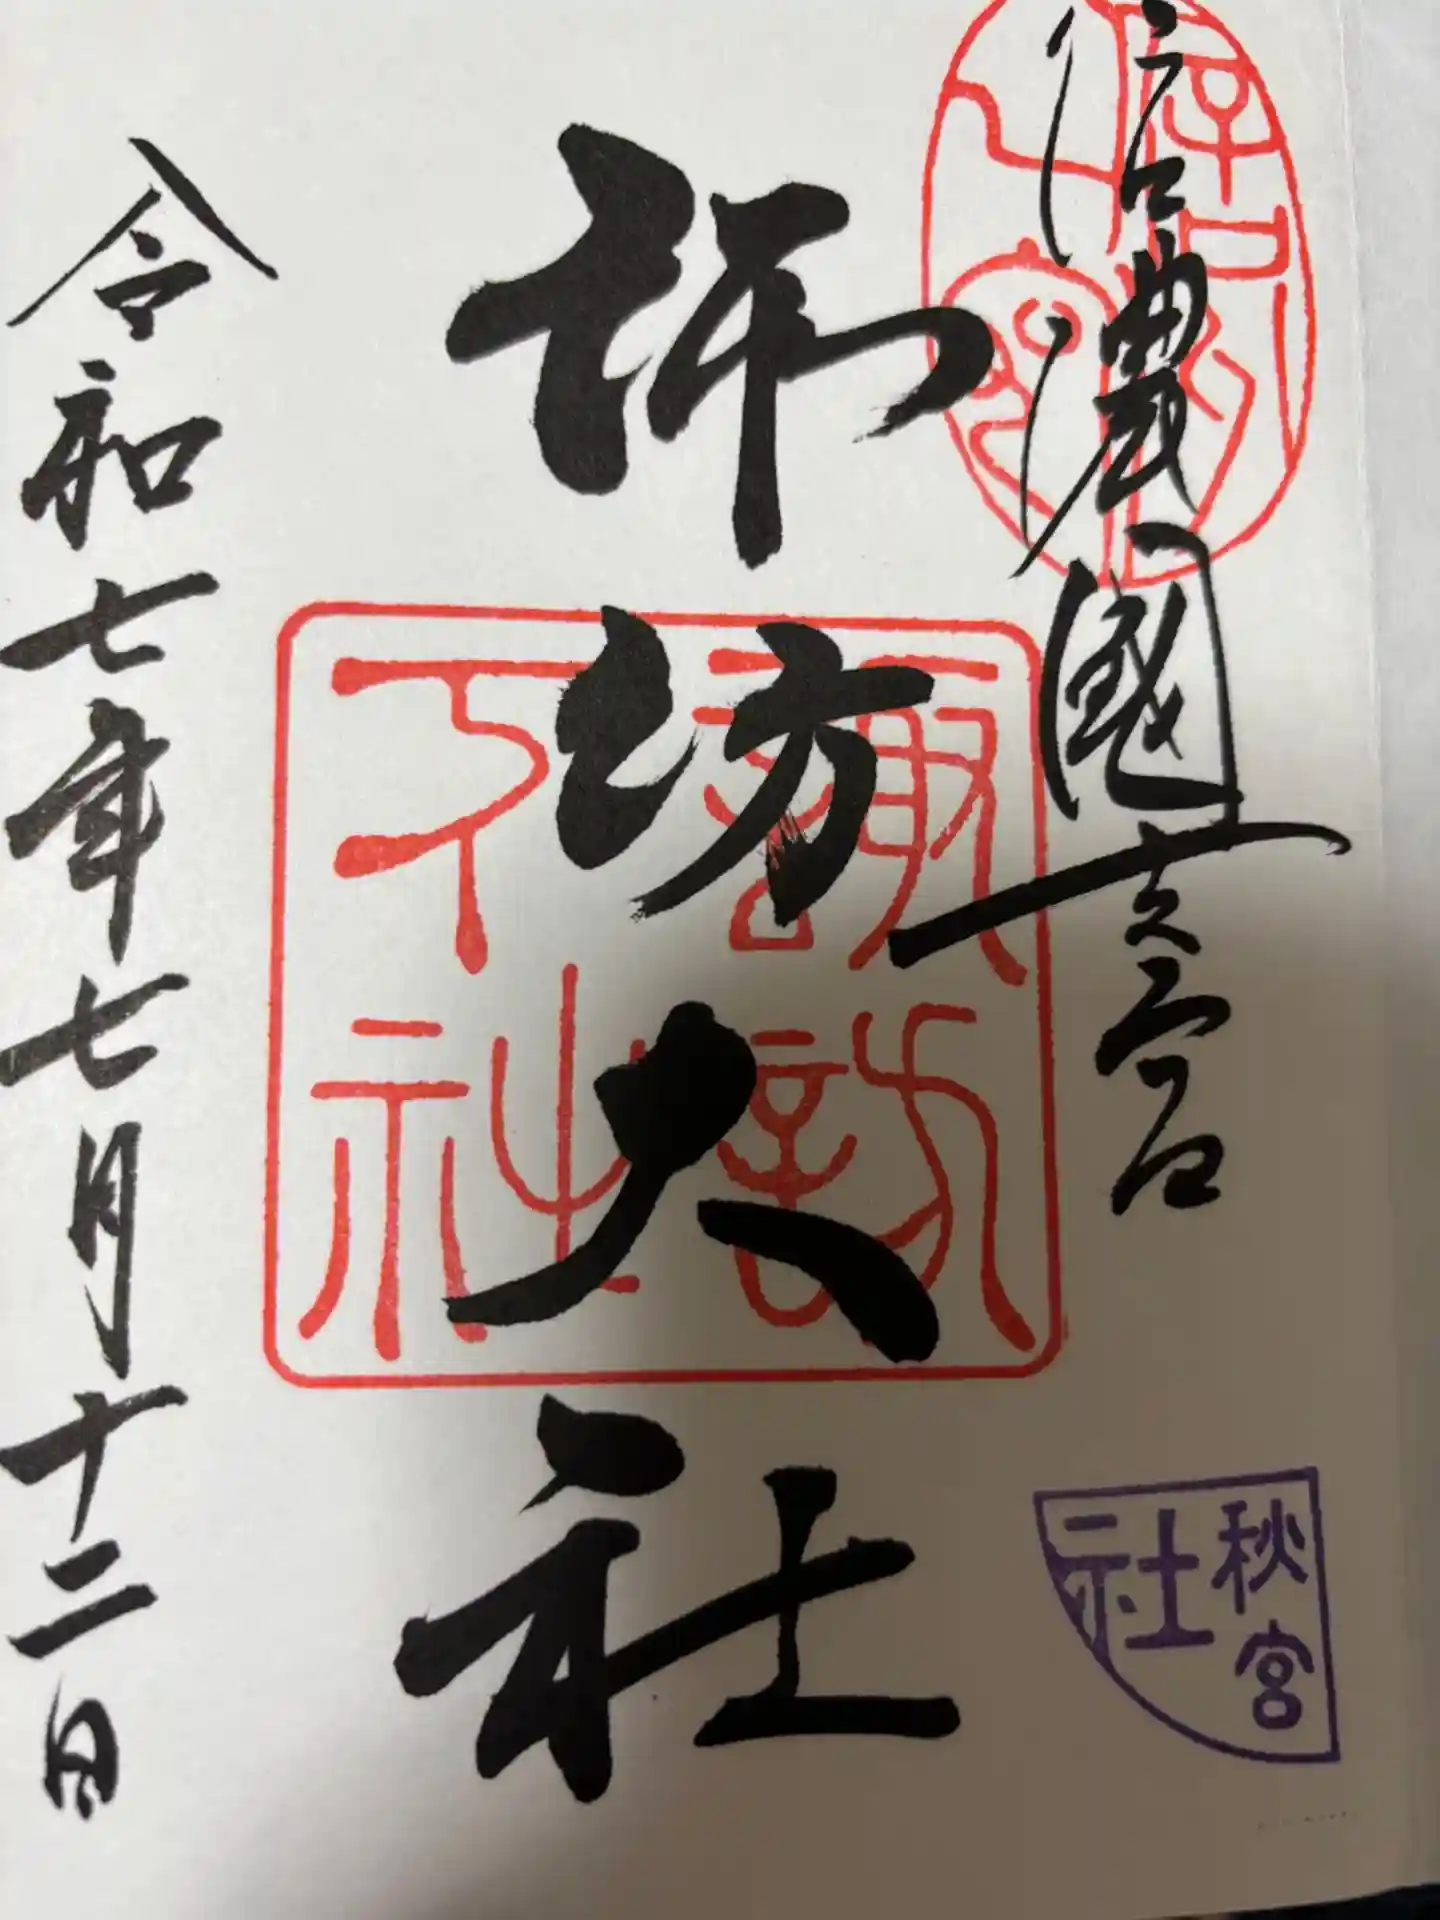 信濃國一之宮
諏訪大社
諏訪
下社
令和七年七月十二日
秋宮
社